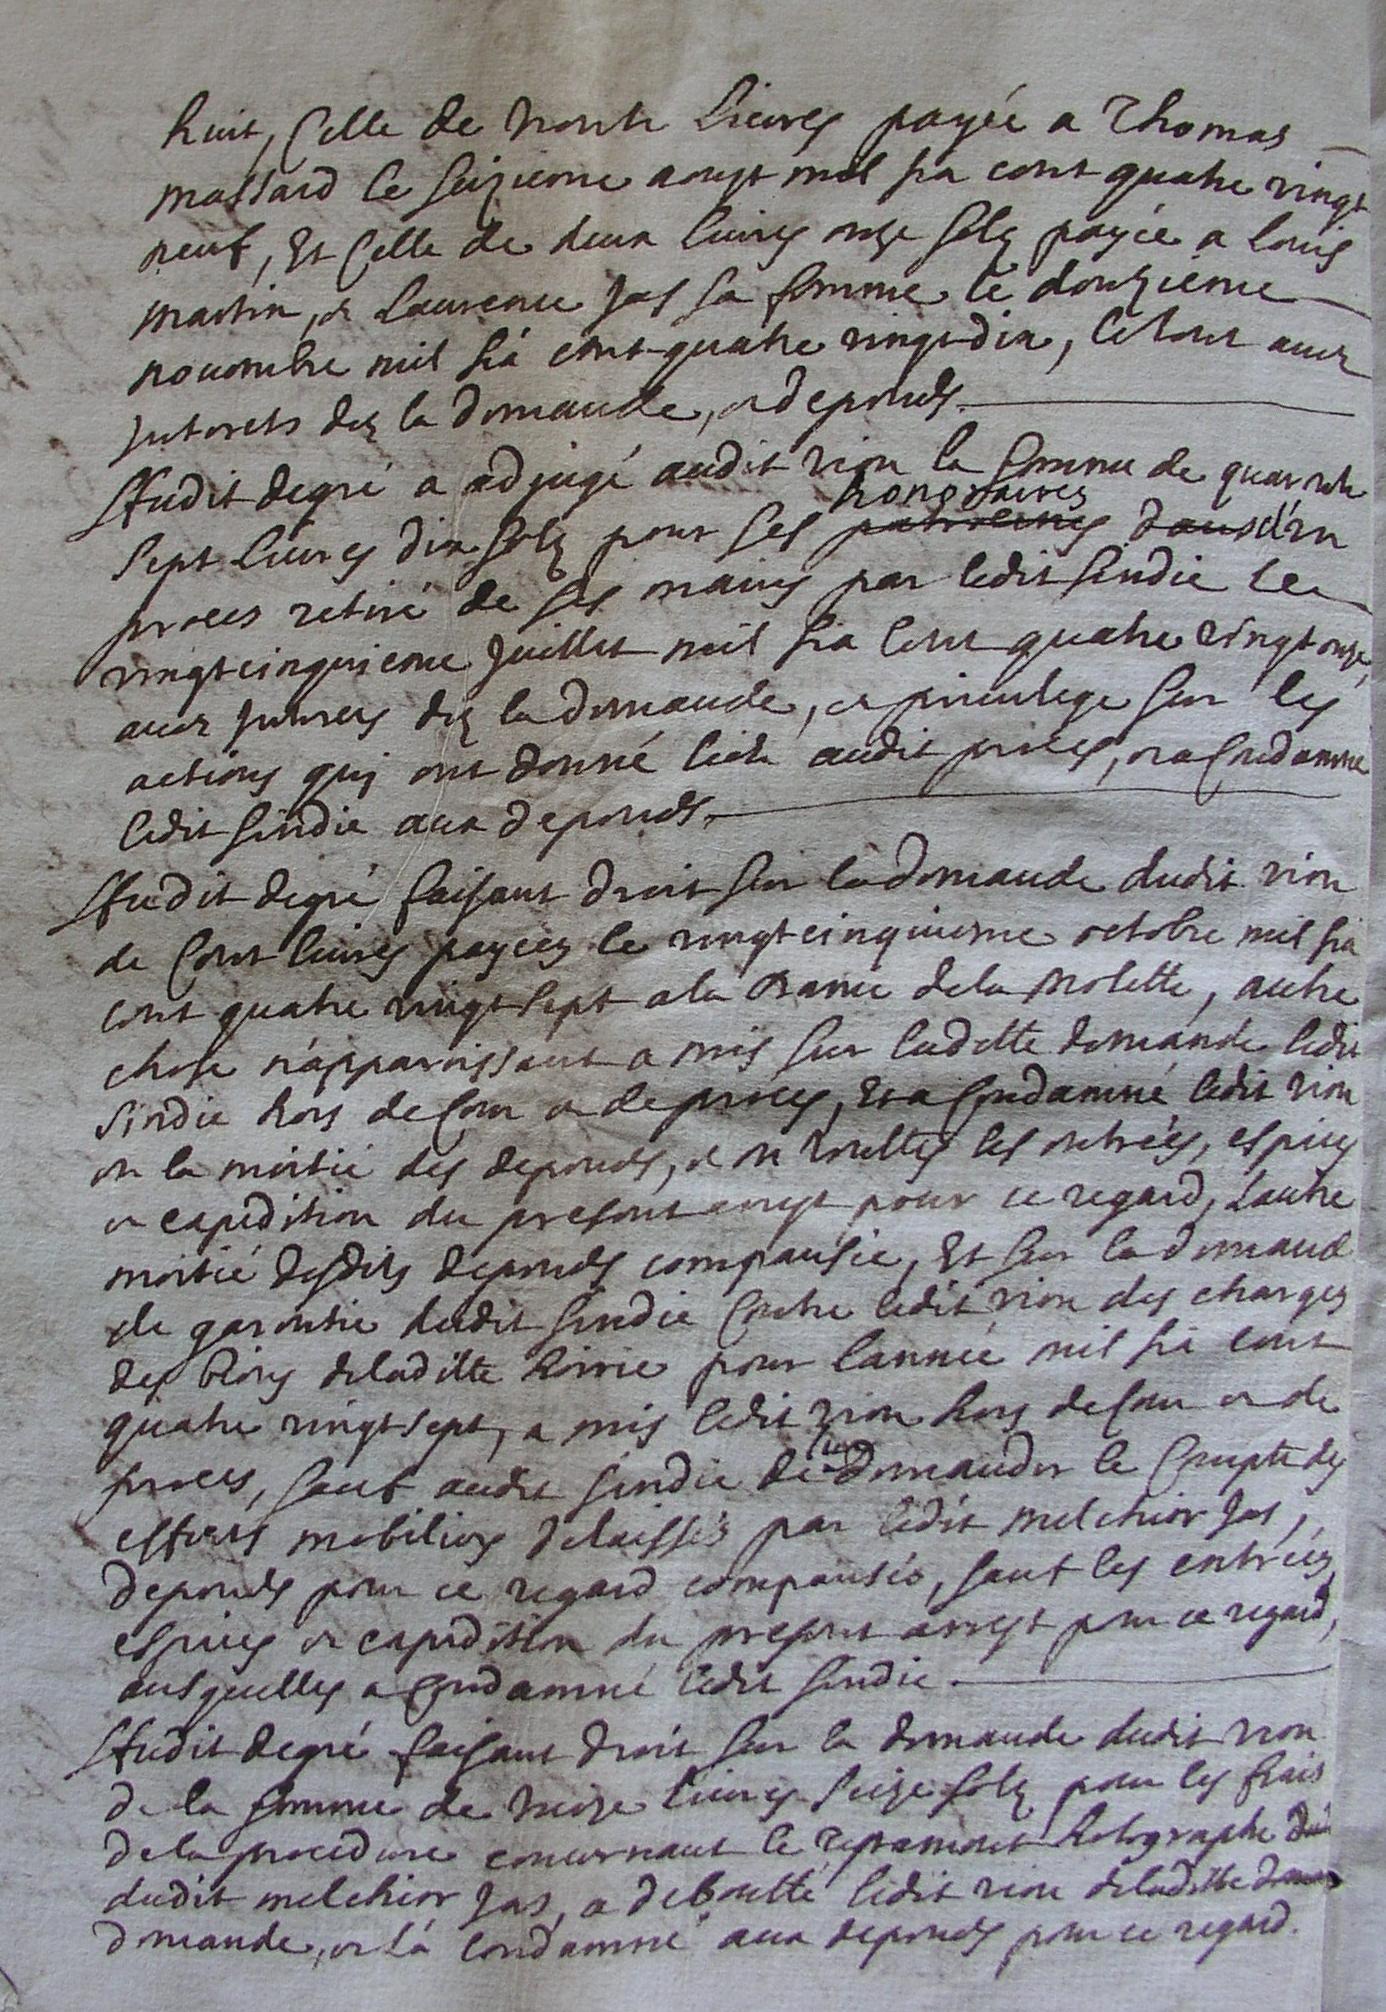 huit, Celle de trente Livres payée a Thomas
massard le seizieme aougt mil six cent quatre vingt
neuf, Et Celle de deux livres onze solz payée a Louis
martin, et Laurence Jas sa femme le douzieme
novembre mil six cent quatre vingt dix, le tout avec
Interets dez la demande, et depends.
Audit degré a adjugé audit rion la somme de quarante
sept livres dix solz pour ses honoraires d'un
proces retiré de ses mains par ledit sindic le
vingt cinquieme Juillet mil six cent quatre vingt onze,
avec Interets dez la demande, et privilege sur les
actions quj ont donné lieu audit procés, et a Condamné
ledit sindic aux depends.
Audit degré faisant droit sur la demande dudit rion
de Cent livres payeez le vingt cinquieme octobre mil six
cent quatre vingt sept a la dame de la Molette, autre
chose n'apparoissant a mis sur laditte demande ledit
sindic hors de Cour et de procés, Et a Condamné ledit rion
en la moitié des depends, et en touttes les entrées, espices
et expedition du present arrest pour ce regard, l'autre
moitié desdits depends compensée, Et sur la demande
de garentie dudit sindic Contre ledit rion des charges
des biens de laditte hoirie pour l'année mil six cent
quatre vingt sept, a mis ledit rion hors de Cour et de
proces, sauf audit sindic de luy demander le Compte des
effects mobiliers delaissés par ledit melchior Jas,
depends pour ce regard compensés, sauf les entrées,
espices et expedition du present arrest pour ce regard,
ausquelles a Condamné ledit sindic.
Audit degré faisant droit sur la demande dudit rion
de la somme de treize livres seize solz pour les frais
de la procedure concernant le testament holographe
dudit melchior Jas, a deboutté ledit rion de laditte
demande, et l'a condamné aux depends pour ce regard.